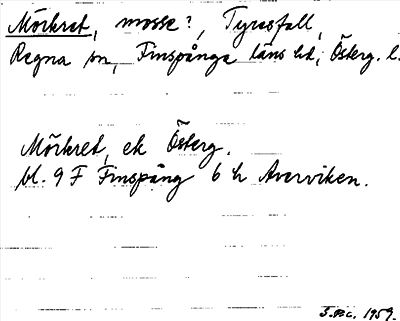 Mörkret, mosse?, Tyresfall,
Regna sn, Finspånga läns hd, Österg. l.
Mörkret, ek Österg.
bl. 9 F Finspång 6 h Averviken.
1959.